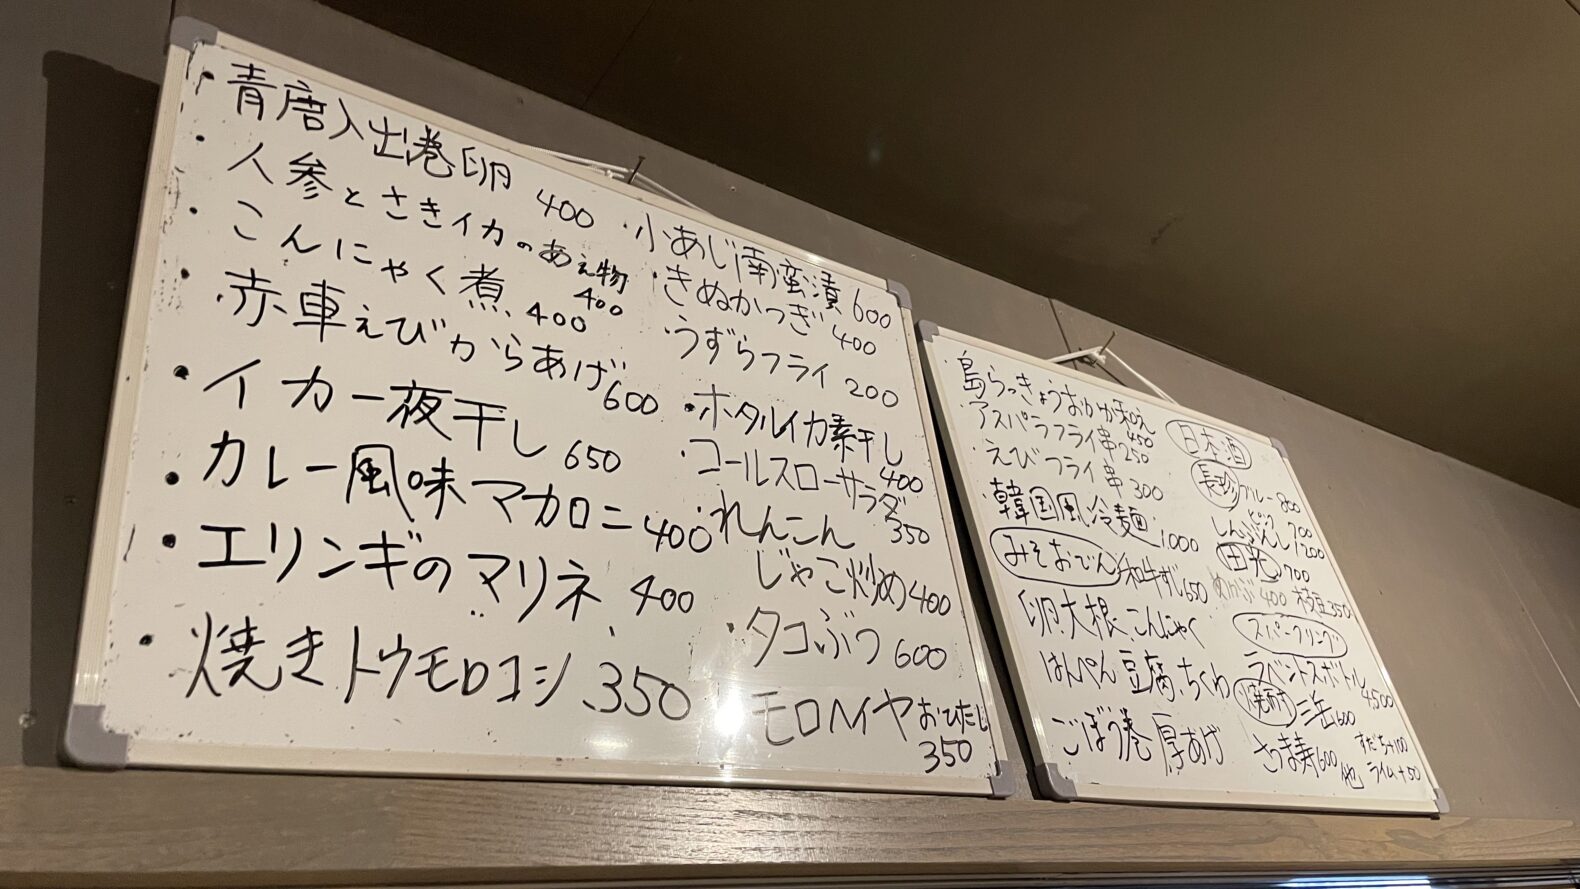 ・青唐入出巻卵 400
・人参とさきイカのあえ物 400
・こんにゃく煮、400
・赤車えびからあげ 600
・イカ一夜干し 650
・カレー風味マカロニ 400
・エリンギのマリネ、400
・焼きトウモロコシ、350
・小あじ南蛮漬 600
・きぬかつぎ 400
・うずらフライ 200
・ホタルイカ素干し 400
・コールスローサラダ 350
・れんこん
じゃこ炒め 400
・タコぶつ 600
モロヘイヤおひたし
350
・島らっきょうおかか和え 450
・アスパラフライ串 250
・えびフライ串 300
・韓国風冷麺、1000
みそおでん 和牛すじ 650
卵、大根、こんにゃく
はんぺん 豆腐、ちくわ
ごぼう巻 厚あげ
日本酒
長珍 ブルー 800
ピンク 700
しんぶんし 1200
田光 700
めかぶ 400 枝豆 350
スパークリング
ラベントスボトル
4,500
三岳 600
さつま寿 600 他
すだち+100
ライム+50